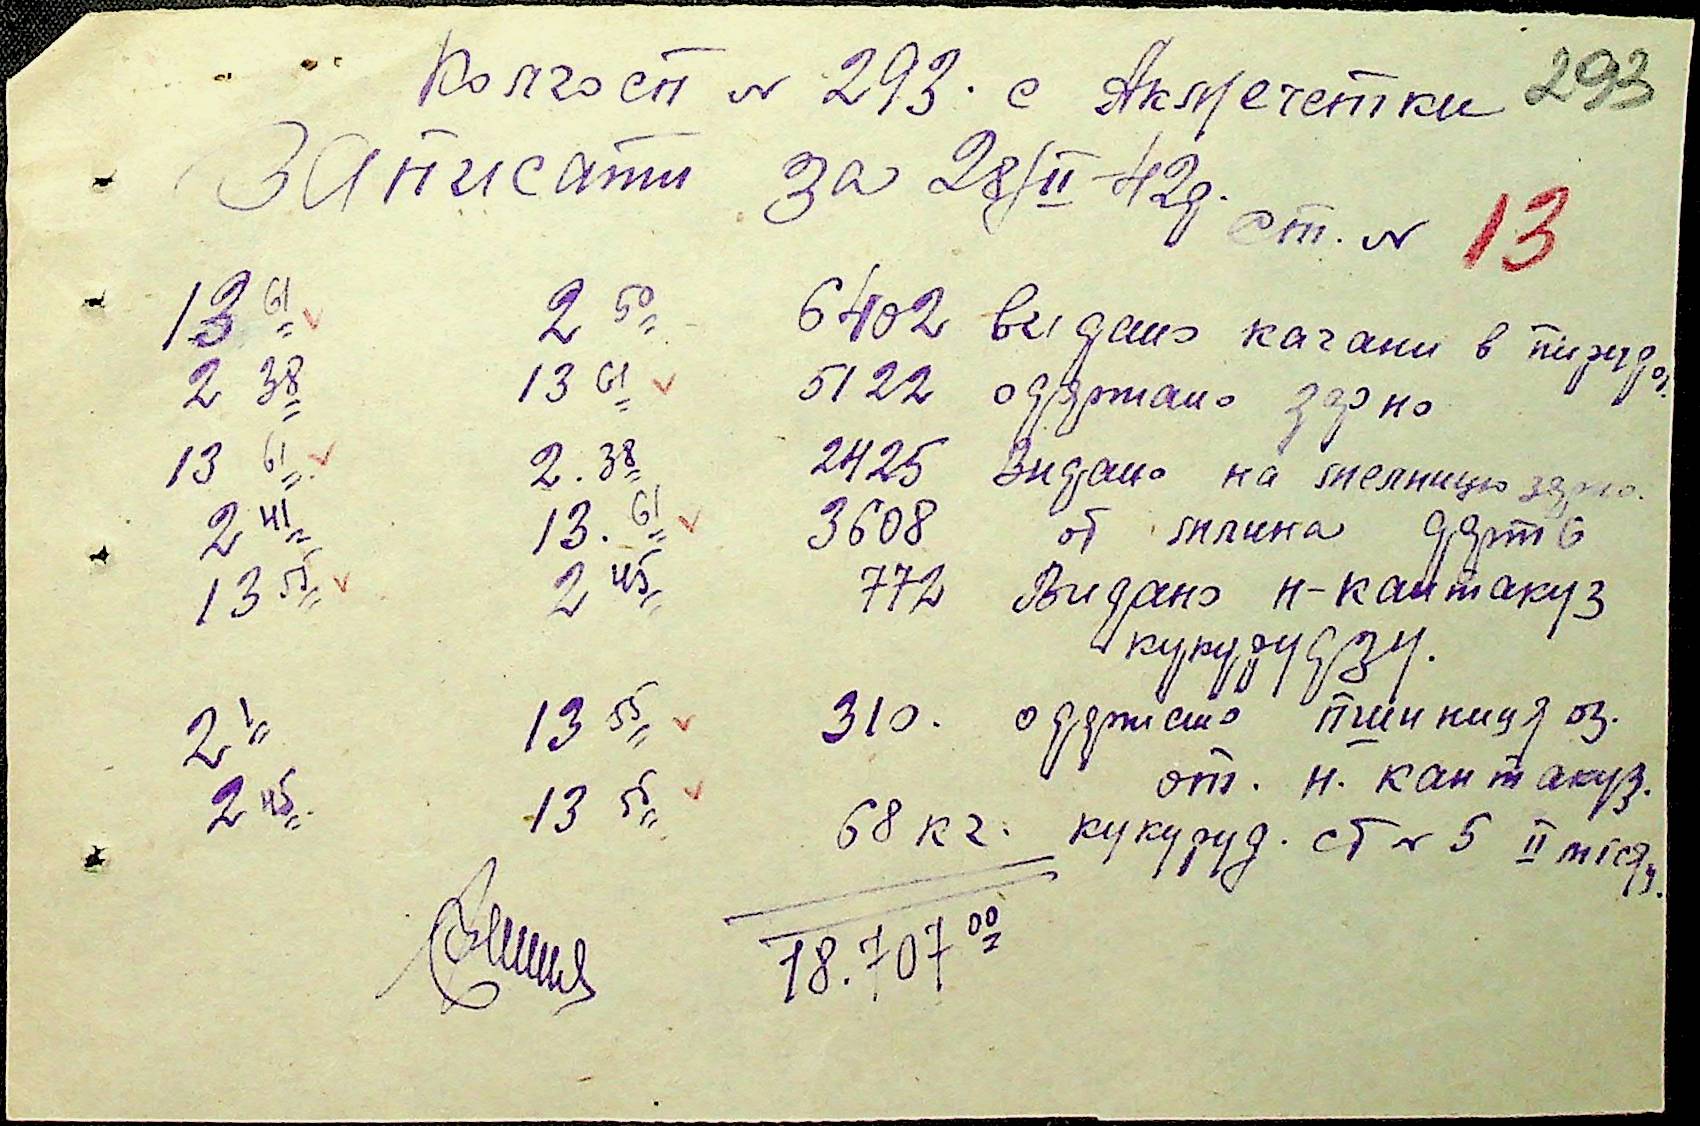 Колгосп № 293. с Акмечетки 293
Записати за 28/II-42р.
ст. № 13
13 61 2 50 6402 видано качани в
2 38 13 61 5122 одэржано зэрно
13 61 2. 38 2425 Видано на мелницю зэрно.
2 41 13. 61 3608 от млина
13 55 2 45 772 Видано н-кантакуз
кукурудзу.
2 1 13 55 310. одэржано пшениця оз.
от. н. кантакуз.
2 45. 13 55 68 кг. кукуруд. ст № 5 II
18.707 00